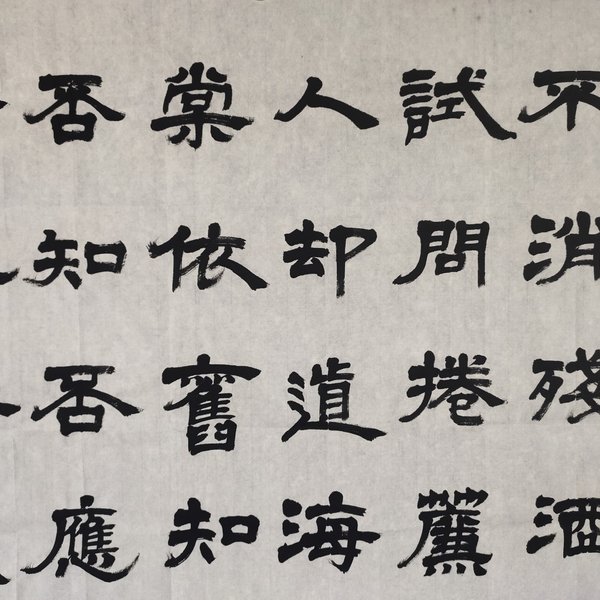 不消殘酒
試問捲簾
人却道海
棠依舊知
否知否應